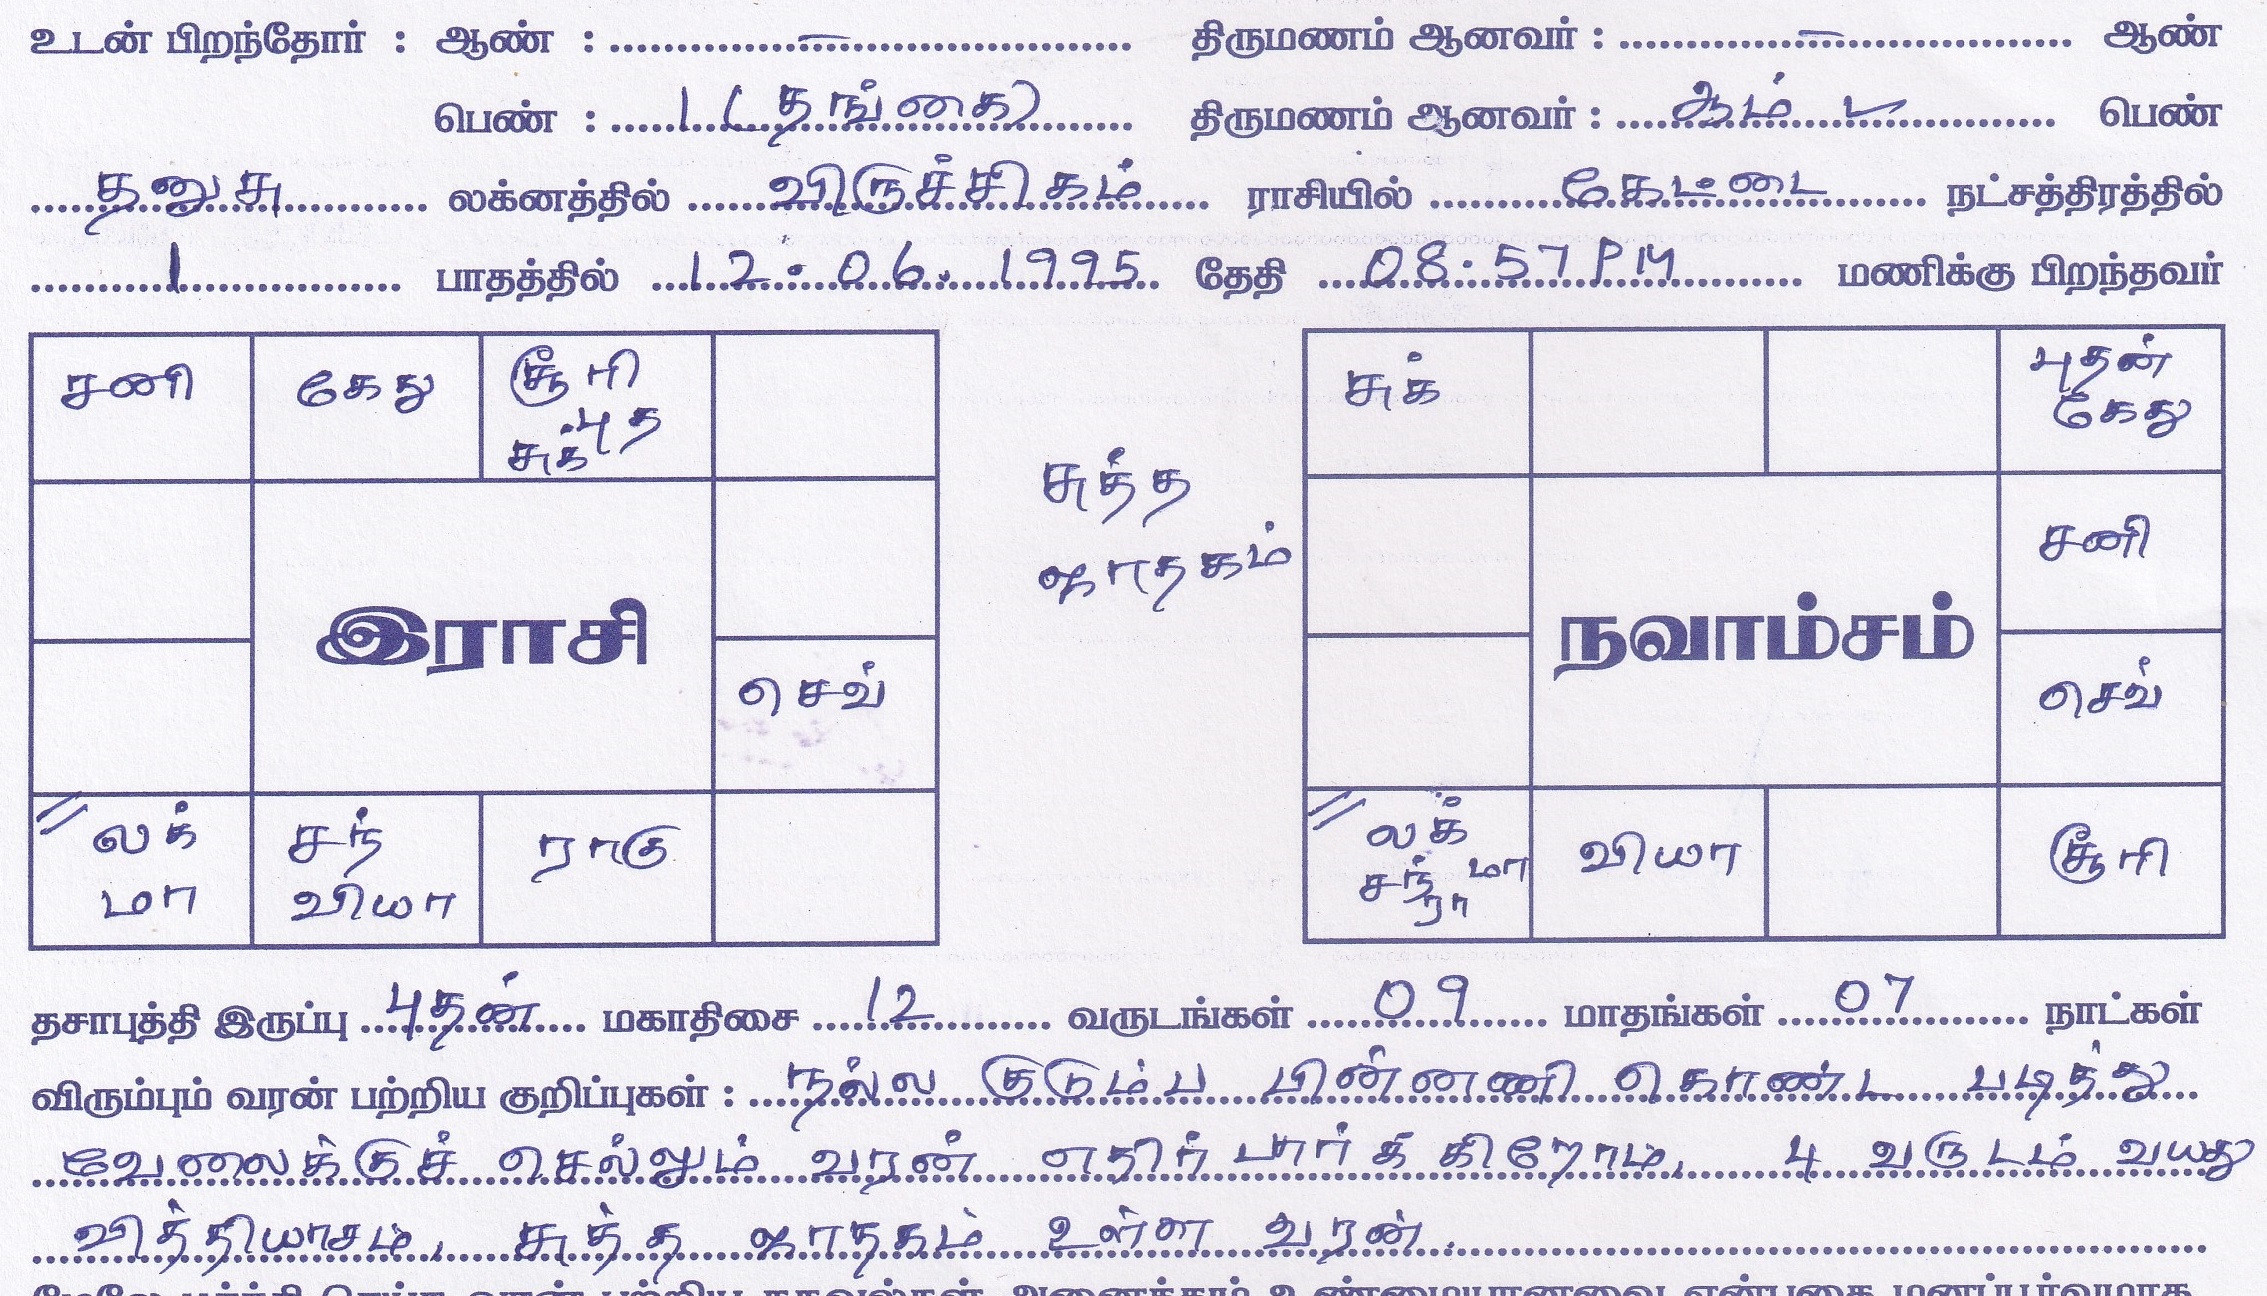 உடன் பிறந்தோர் : ஆண் : ..........–.......... திருமணம் ஆனவர் : ..........–.......... ஆண்
பெண் : ..... 1 ( தங்கை) ..... திருமணம் ஆனவர் : ..... ஆம் ..... பெண்
..... தனுசு ..... லக்னத்தில் ..... விருச்சிகம் ..... ராசியில் ..... கேட்டை ..... நட்சத்திரத்தில்
..... 1 ..... பாதத்தில் ..... 12. 06. 1995 ..... தேதி ..... 08.57 PM ..... மணிக்கு பிறந்தவர்
சனி கேது சூரி புத சுக்
செவ்
இராசி
லக் மா சந் வியா ராகு
சுத்த
ஜாதகம்
சுக் புதன் கேது
சனி
நவாம்சம்
செவ்
லக் மா சந் ரா வியா சூரி
தசாபுத்தி இருப்பு ..... புதன் ..... மகாதிசை ..... 12 ..... வருடங்கள் ..... 09 ..... மாதங்கள் ..... 07 ..... நாட்கள்
விரும்பும் வரன் பற்றிய குறிப்புகள் : நல்ல குடும்ப பின்னணி கொண்ட படித்து
வேலைக்குச் செல்லும் வரன் எதிர் பார்க்கிறோம். 4 வருடம் வயது
வித்தியாசம். சுத்த ஜாதகம் உள்ள வரன்.